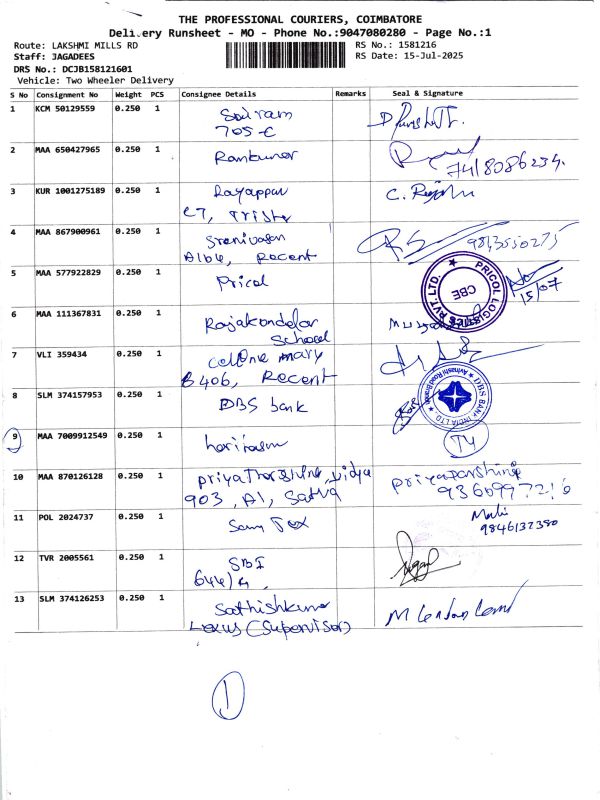 THE PROFESSIONAL COURIERS, COIMBATORE
Delivery Runsheet - MO - Phone No.:9047080280 - Page No.:1
Route: LAKSHMI MILLS RD
RS No.: 1581216
Staff: JAGADEES
RS Date: 15-Jul-2025
DRS No.: DCJB158121601
Vehicle: Two Wheeler Delivery
S No Consignment No Weight PCS Consignee Details Remarks Seal & Signature
1 KCM 50129559 0.250 1 Sairam
705-C
2 MAA 650427965 0.250 1 Ramkumar
7418086234.
3 KUR 1001275189 0.250 1 Rayappan C.
C7, Trista
4 MAA 867900961 0.250 1 Srenivasan
A104, Recent
5 MAA 577922829 0.250 1 Pricol
PRICOL LOGISTICS PVT. LTD. CBE
15/07
6 MAA 111367831 0.250 1
School
7 VLI 359434 0.250 1 mary
B406, Recent
8 SLM 374157953 0.250 1 DBS bank
DBS BANK INDIA LTD. Avinashi Road Branch
9 MAA 7009912549 0.250 1
10 MAA 870126128 0.250 1 vidya
903, A1, Satva
9360997216
11 POL 2024737 0.250 1 Sam Tex
9846132380
12 TVR 2005561 0.250 1 SBI
13 SLM 374126253 0.250 1 Sathishkumar
Lexus (Supervisor)
1